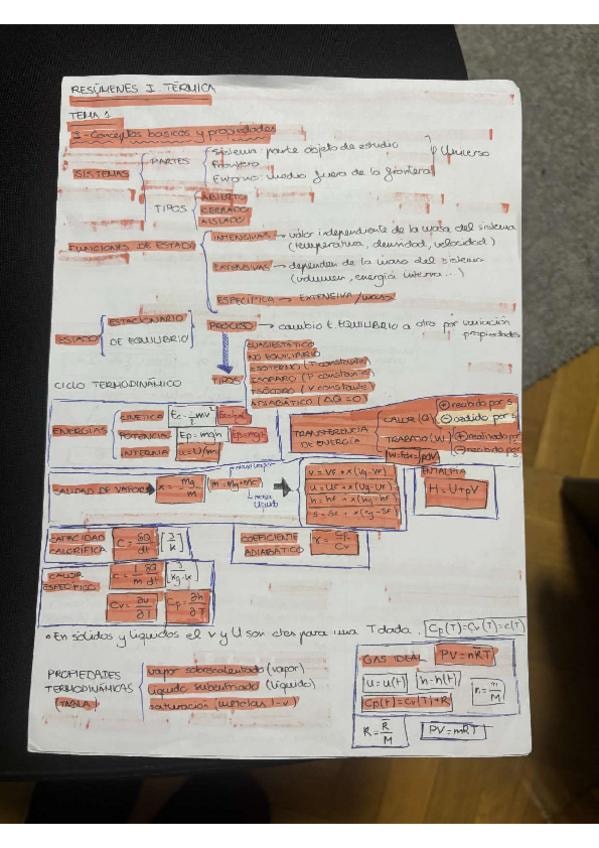 RESÚMENES I. TÉRMICA
TEMA 1
1-Conceptos basicos y propiedades
SISTEMAS
PARTES
Sistema: parte objeto de estudio
Frontera
Entorno: medio fuera de la frontera
Universo
TIPOS
ABIERTO
CERRADO
AISLADO
FUNCIONES DE ESTADO
INTENSIVAS → valor independiente de la masa del sistema
(temperatura, densidad, velocidad)
EXTENSIVAS → dependen de la masa del sistema
(volumen, energía interna...)
ESPECIFICA → EXTENSIVA/masa
ESTADO
ESTACIONARIO
DE EQUILIBRIO
PROCESO → cambio E. EQUILIBRIO a otro por variación
propiedades
TIPOS
CUASIESTÁTICO
NO EQUILIBRIO
ISOTERMO (T constante)
ISOBARO (P constante)
ISOCORO (V constante)
ADIABÁTICO (ΔQ=0)
CICLO TERMODINÁMICO
ENERGÍAS
CINETICA Ec=½mv²
POTENCIAL Ep=mgh
INTERNA u=U/m
TRANSFERENCIA
DE ENERGÍA
CALOR (Q) ⊕ recibido por s
⊖ cedido por s
TRABAJO (W) ⊕ realizado por
⊖ recibido por
CALIDAD DE VAPOR → x = mg/m
masa vapor
masa
líquido
v = vf + x(vg-vf)
u = uf + x(ug-uf)
h = hf + x(hg-hf)
s = sf + x(sg-sf)
ENTALPIA
H=U+pV
CAPACIDAD
CALORÍFICA
C = δQ/dt [J/K]
COEFICIENTE
ADIABÁTICO
γ = Cp/Cv
CALOR
ESPECÍFICO
c = 1/m δQ/dt [J/kg·K]
Cv = ∂u/∂T
Cp = ∂h/∂T
• En solidos y liquidos el v y U son ctes para una T dada. Cp(T)=Cv(T)=c(T)
PROPIEDADES
TERMODINÁMICAS
(TABLA)
vapor sobrecalentado (vapor)
liquido subenfriado (líquido)
saturación (mezclas l-v)
GAS IDEAL PV=nR̅T
u=u(t) h=h(t) n=m/M
Cp(t)=Cv(T)+R
R=R̅/M PV=mRT